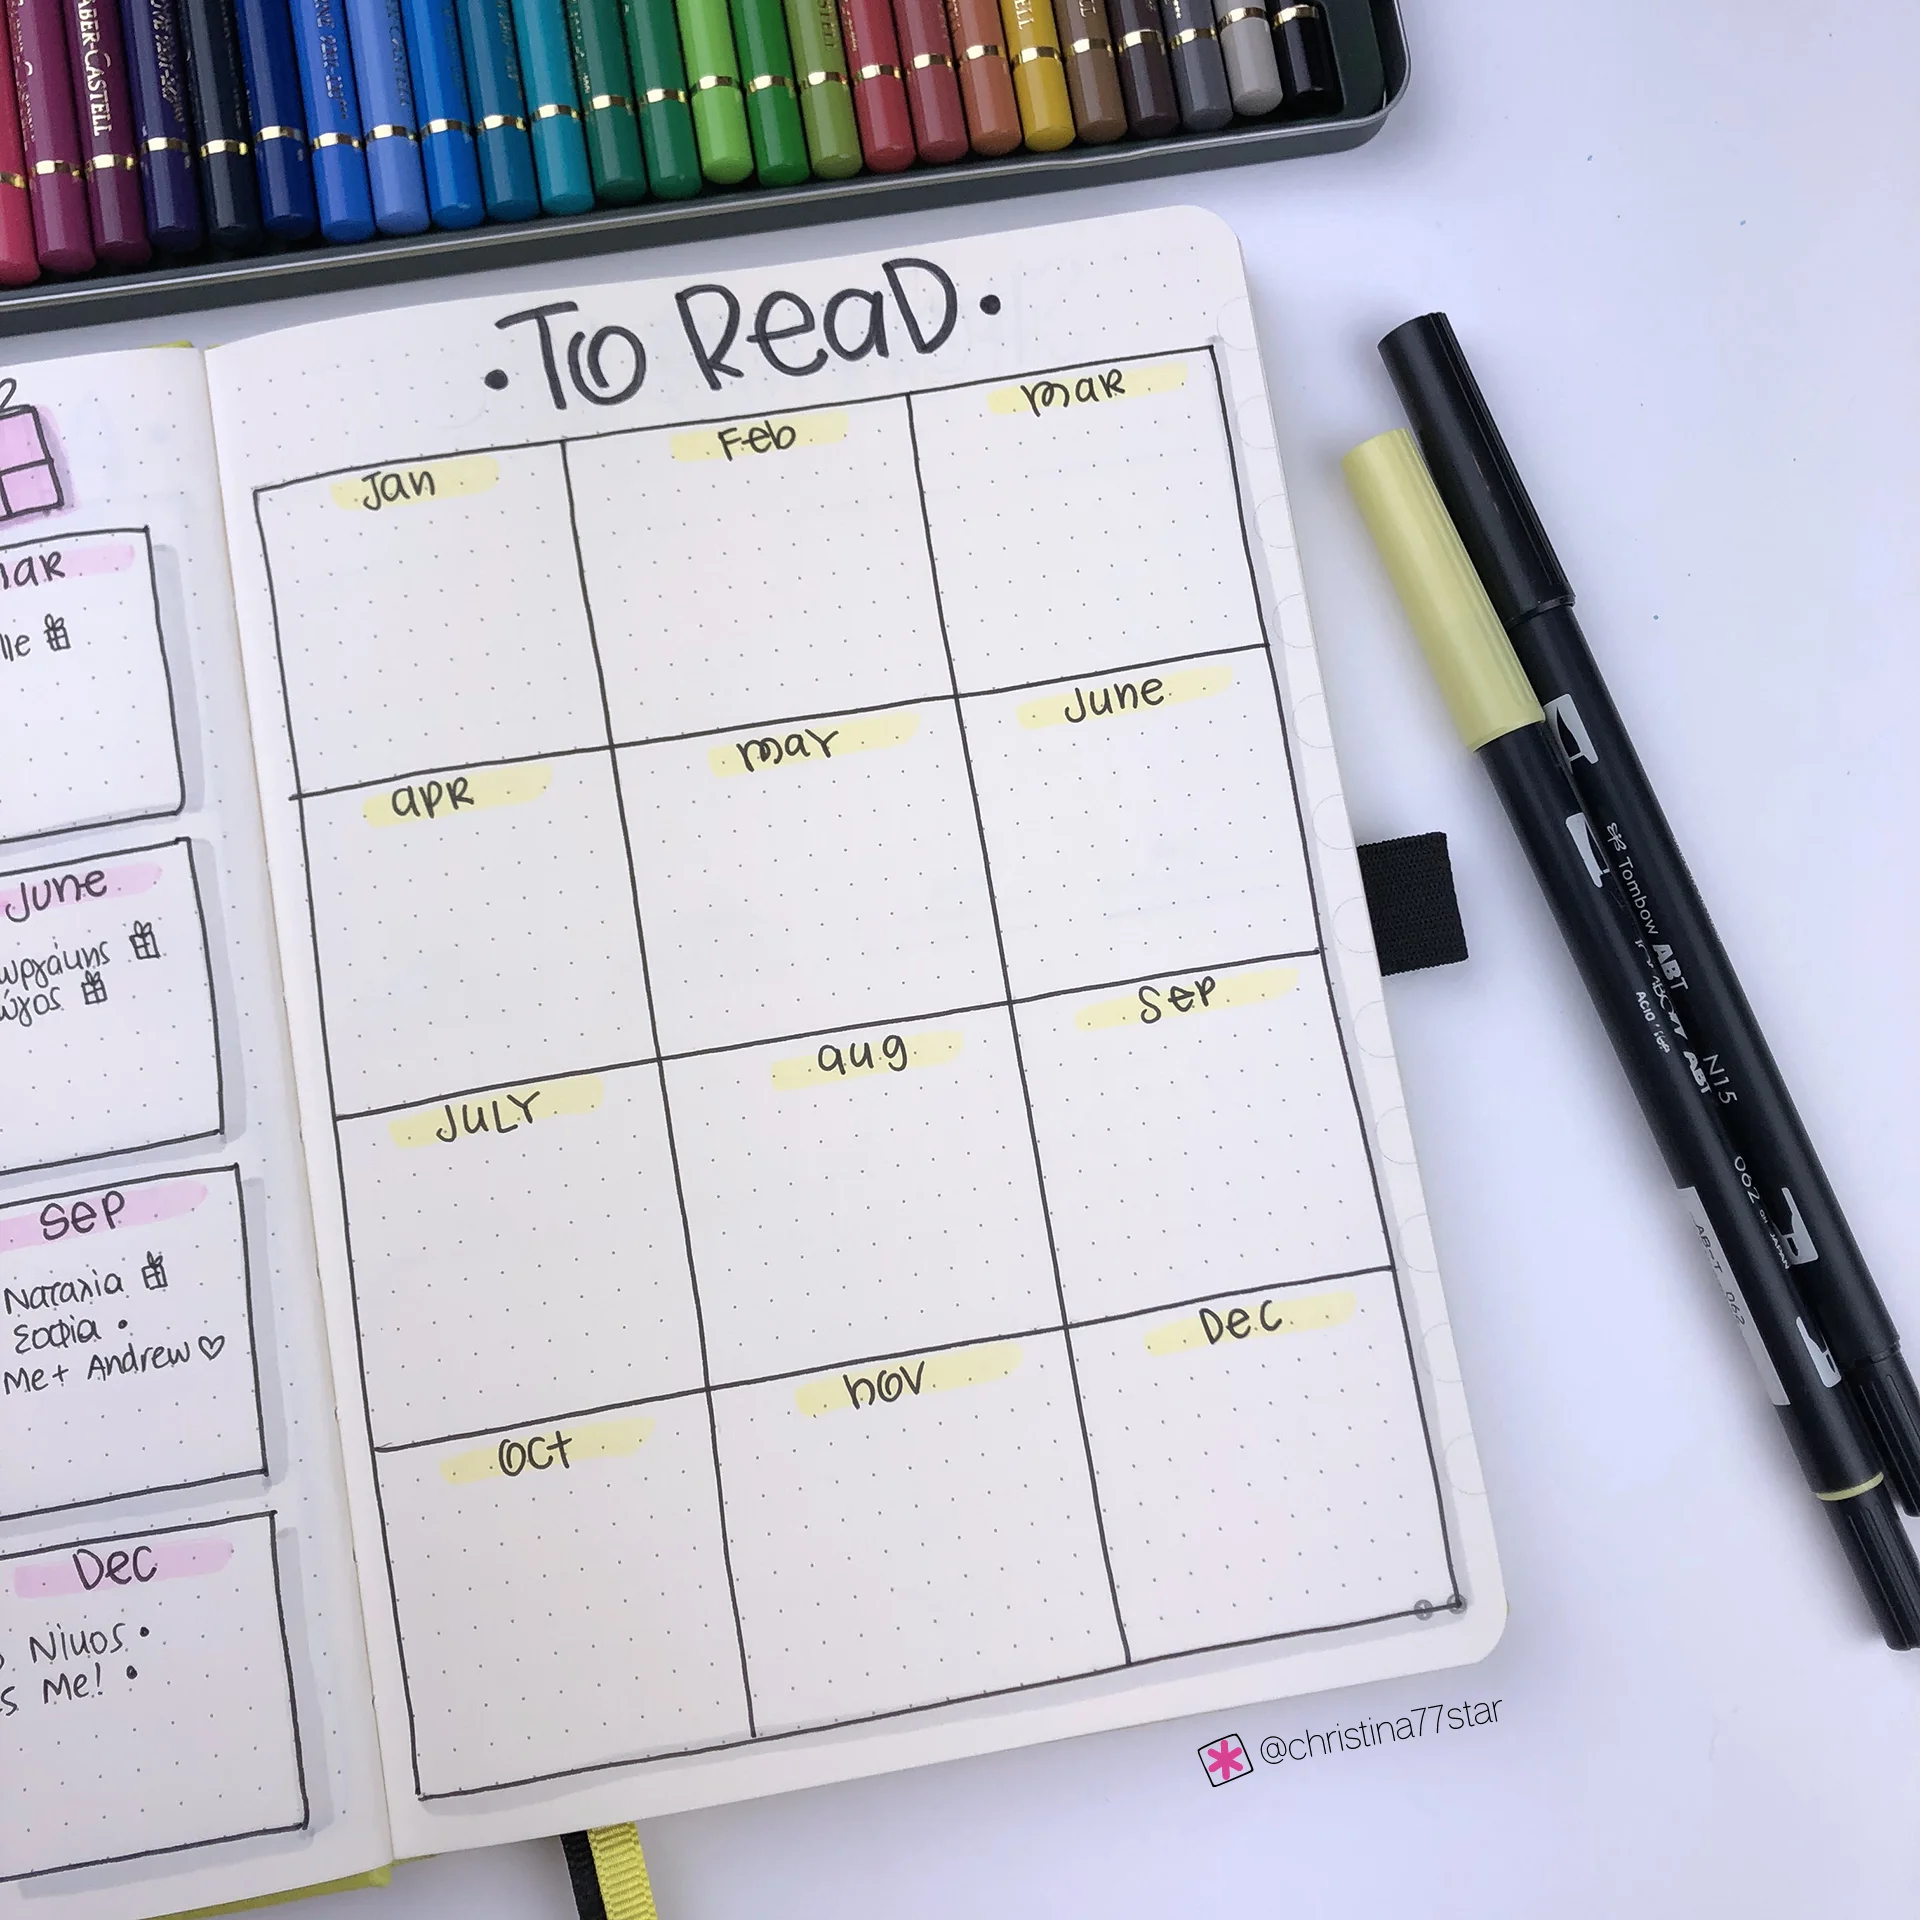 FABER-CASTELL
•To Read•
Jan
Feb
mar
apr
may
June
JULY
aug
Sep
Oct
nov
Dec
June
Sep
Ναταλία
Σοφία •
Me + Andrew ♡
Dec
Νίκος •
Me! •
Tombow ABT
ABT
N15
062
JAPAN
@christina77star